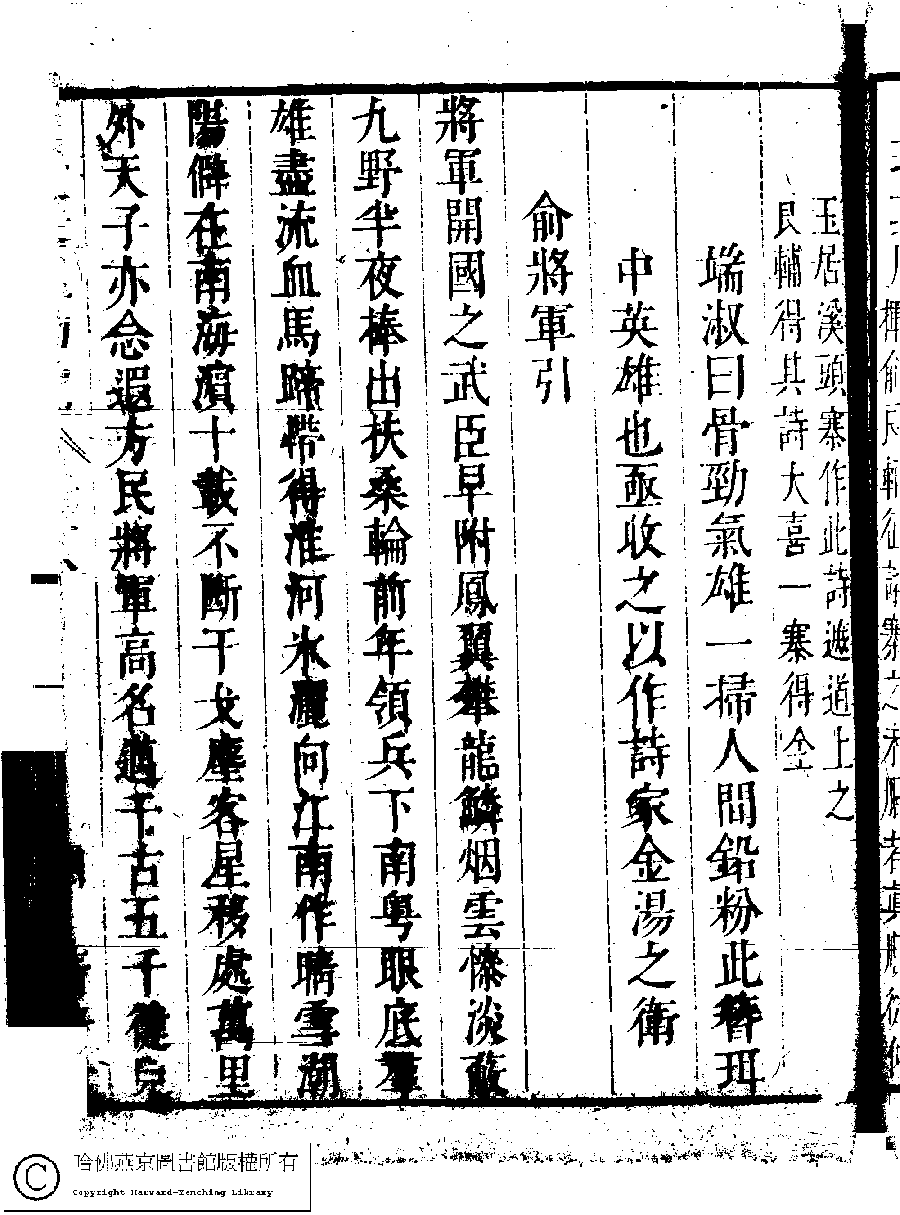 玉居溪頭寨作此詩遞道上之
良輔得其詩大喜一寨得全
端淑曰骨勁氣雄一掃人間鉛粉此簪珥
中英雄也亟收之以作詩家金湯之衛
俞將軍引
將軍開國之武臣早附鳳翼攀龍鱗烟雲慘淡蔽
九野半夜捧出扶桑輪前年領兵下南粵眼底羣
雄盡流血馬蹄帶得淮河氷灑向江南作晴雪潮
陽僻在南海濱十載不斷干戈塵客星移處萬里
外天子亦念遐方民將軍高名邁千古五千健兒
哈佛燕京圖書館版權所有
Copyright Harvard-Yenching Library